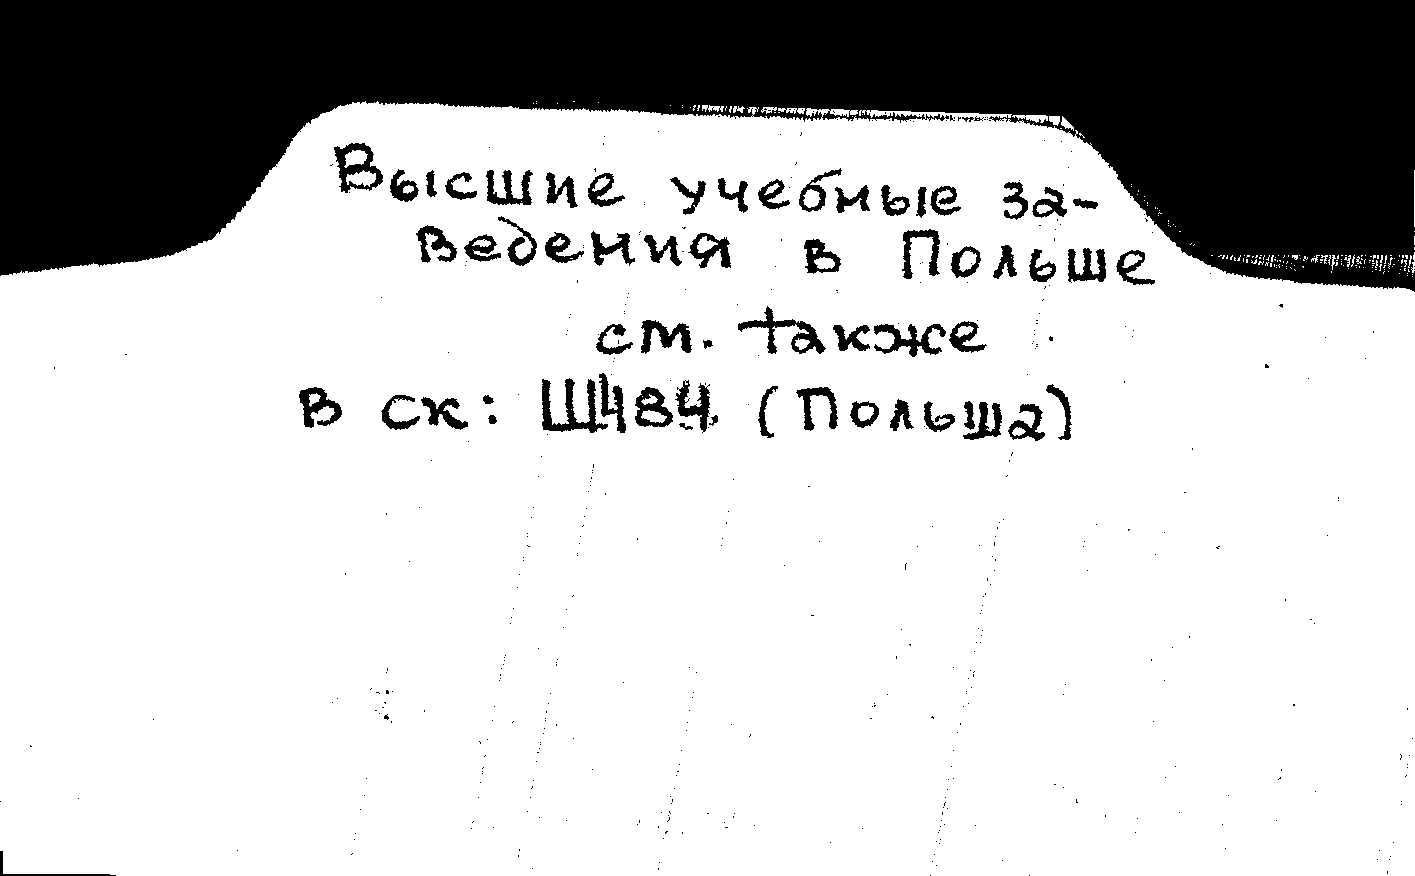 Высшие учебные за-
ведения в Польше
см. также
в ск: Ш484 (Польша)